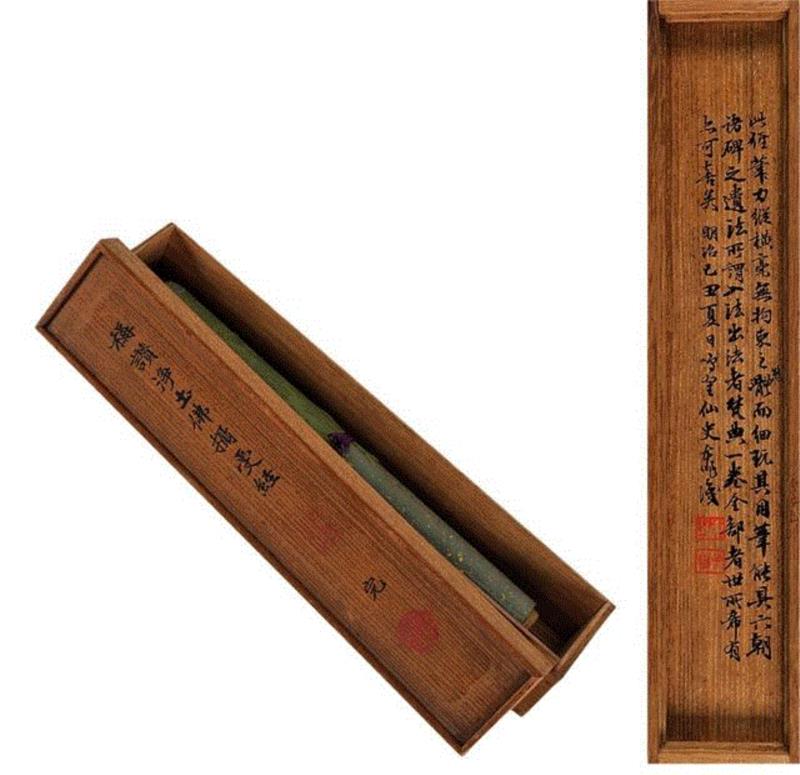 稱讚淨土佛攝受經
完
此經筆力縱橫毫無拘束之態而細玩其用筆能具六朝
諸碑之遺法所謂入法出法者梵典一卷全部者世所希有
可喜矣 明治己丑夏日鳴鶴仙史